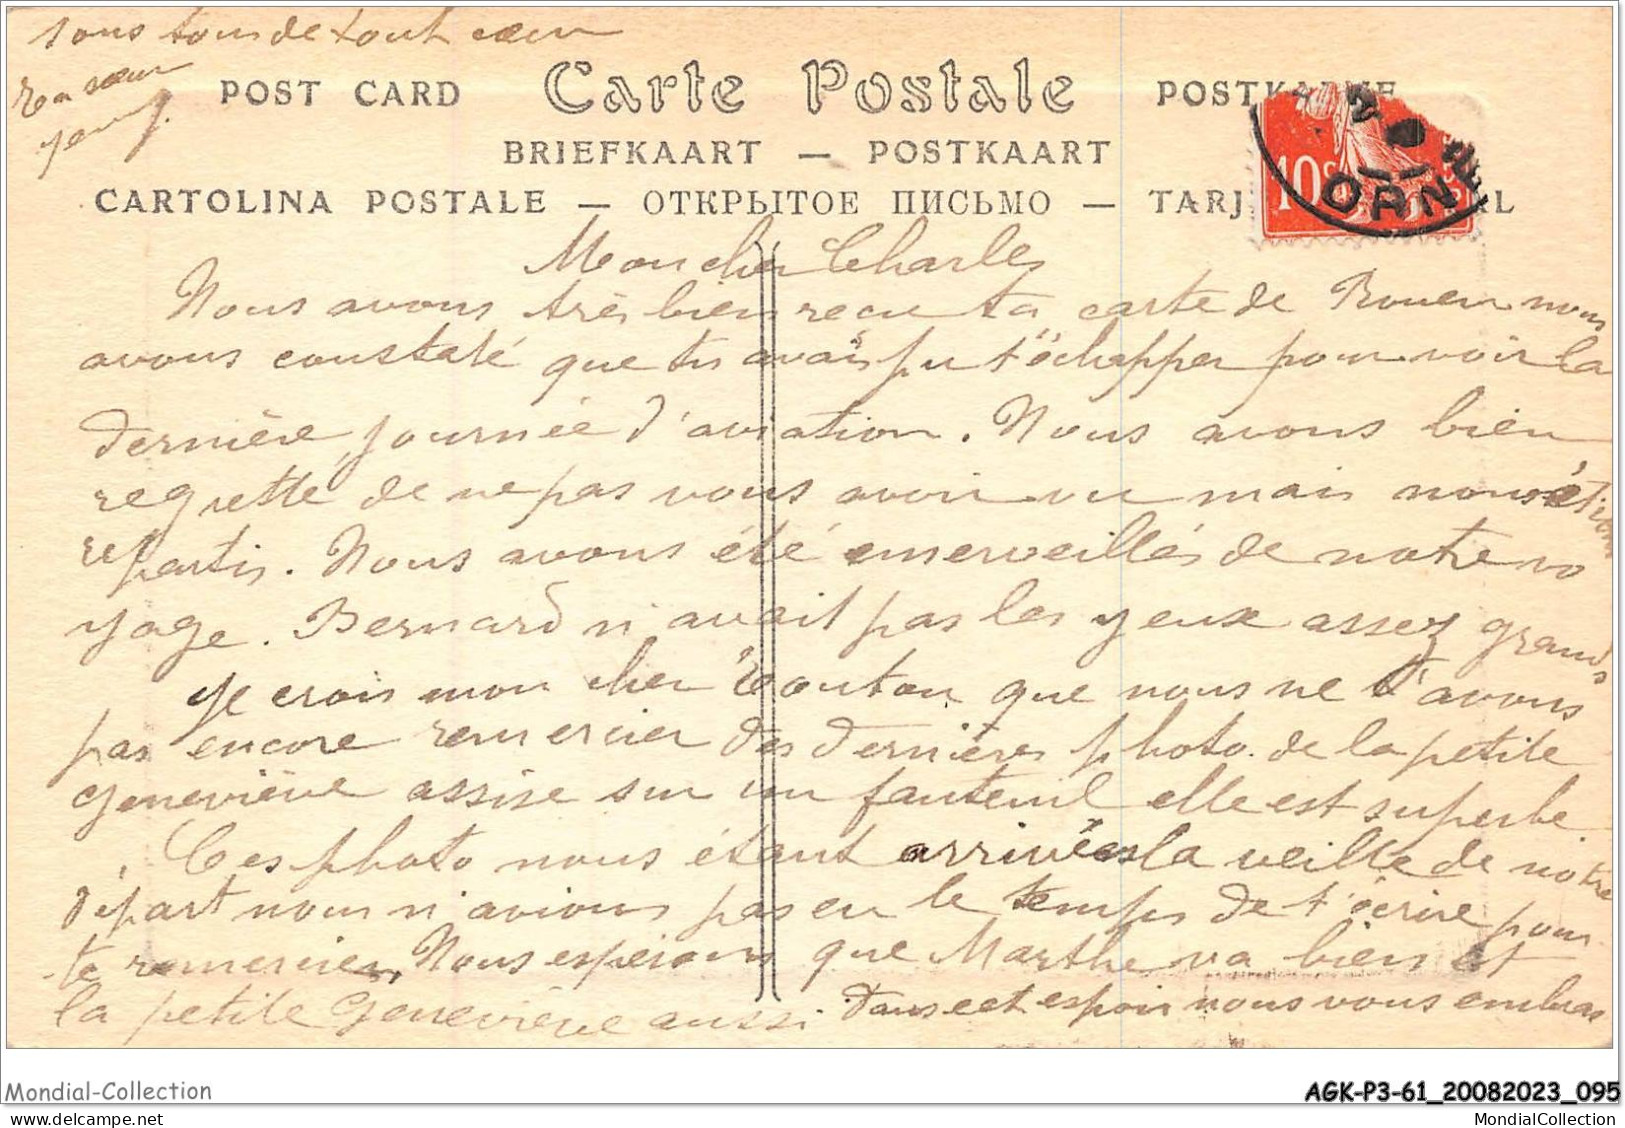 POST CARD Carte Postale POSTKARTE
BRIEFKAART — POSTKAART
CARTOLINA POSTALE — ОТКРЫТОЕ ПИСЬМО — TARJ AL
10c
ORNE
Mon cher Charles
Nous avons très bien reçu ta carte de Rouen nous
avons constaté que tu avais pu t'échapper pour voir la
dernière journée d'aviation. Nous avons bien
regretté de ne pas vous avoir vu mais nous étions
repartis. Nous avons été émerveillés de notre vo
yage. Bernard n'avait pas les yeux assez grands
Je crois mon cher Tonton que nous ne t'avons
pas encore remercier des dernières photo. de la petite
Geneviève assise sur un fauteuil elle est superbe
Ces photo nous étant arrivées la veille de notre
départ nous n'avions pas eu le temps de t'écrire pour
te remercier. Nous espérons que Marthe va bien et
la petite Geneviève aussi. Dans cet espoir nous vous embras
sons tous de tout cœur
Ta sœur
Mondial-Collection
AGK-P3-61_20082023_095
MondialCollection